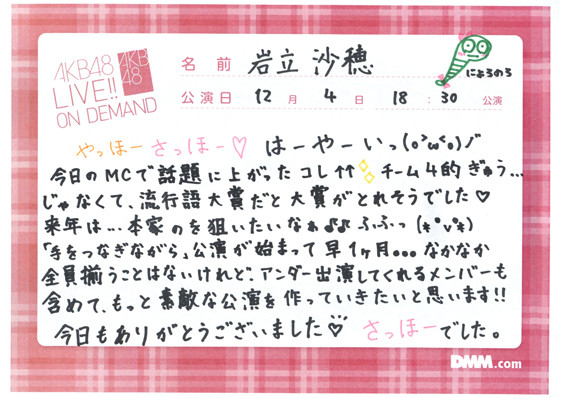 AKB48
LIVE!!
ON DEMAND
AKB
48
名前 岩立 沙穂
にょろのろ
公演日 12月 4日 18:30 公演
やっほー さっほー♡ はーやーいっ(o>ω<o)ノ"
今日のMCで話題に上がったコレ↑↑ チーム4的ぎゅう…
じゃなくて、流行語大賞だと大賞がとれそうでした♡
来年は…本家のを狙いたいなぁ♪♪ ふふっ(*°v°*)
「手をつなぎながら」公演が始まって早1ヶ月•••なかなか
全員揃うことはないけれど、アンダー出演してくれるメンバーも
含めて、もっと素敵な公演を作っていきたいと思います!!
今日もありがとうございました♡ さっほーでした。
DMM.com